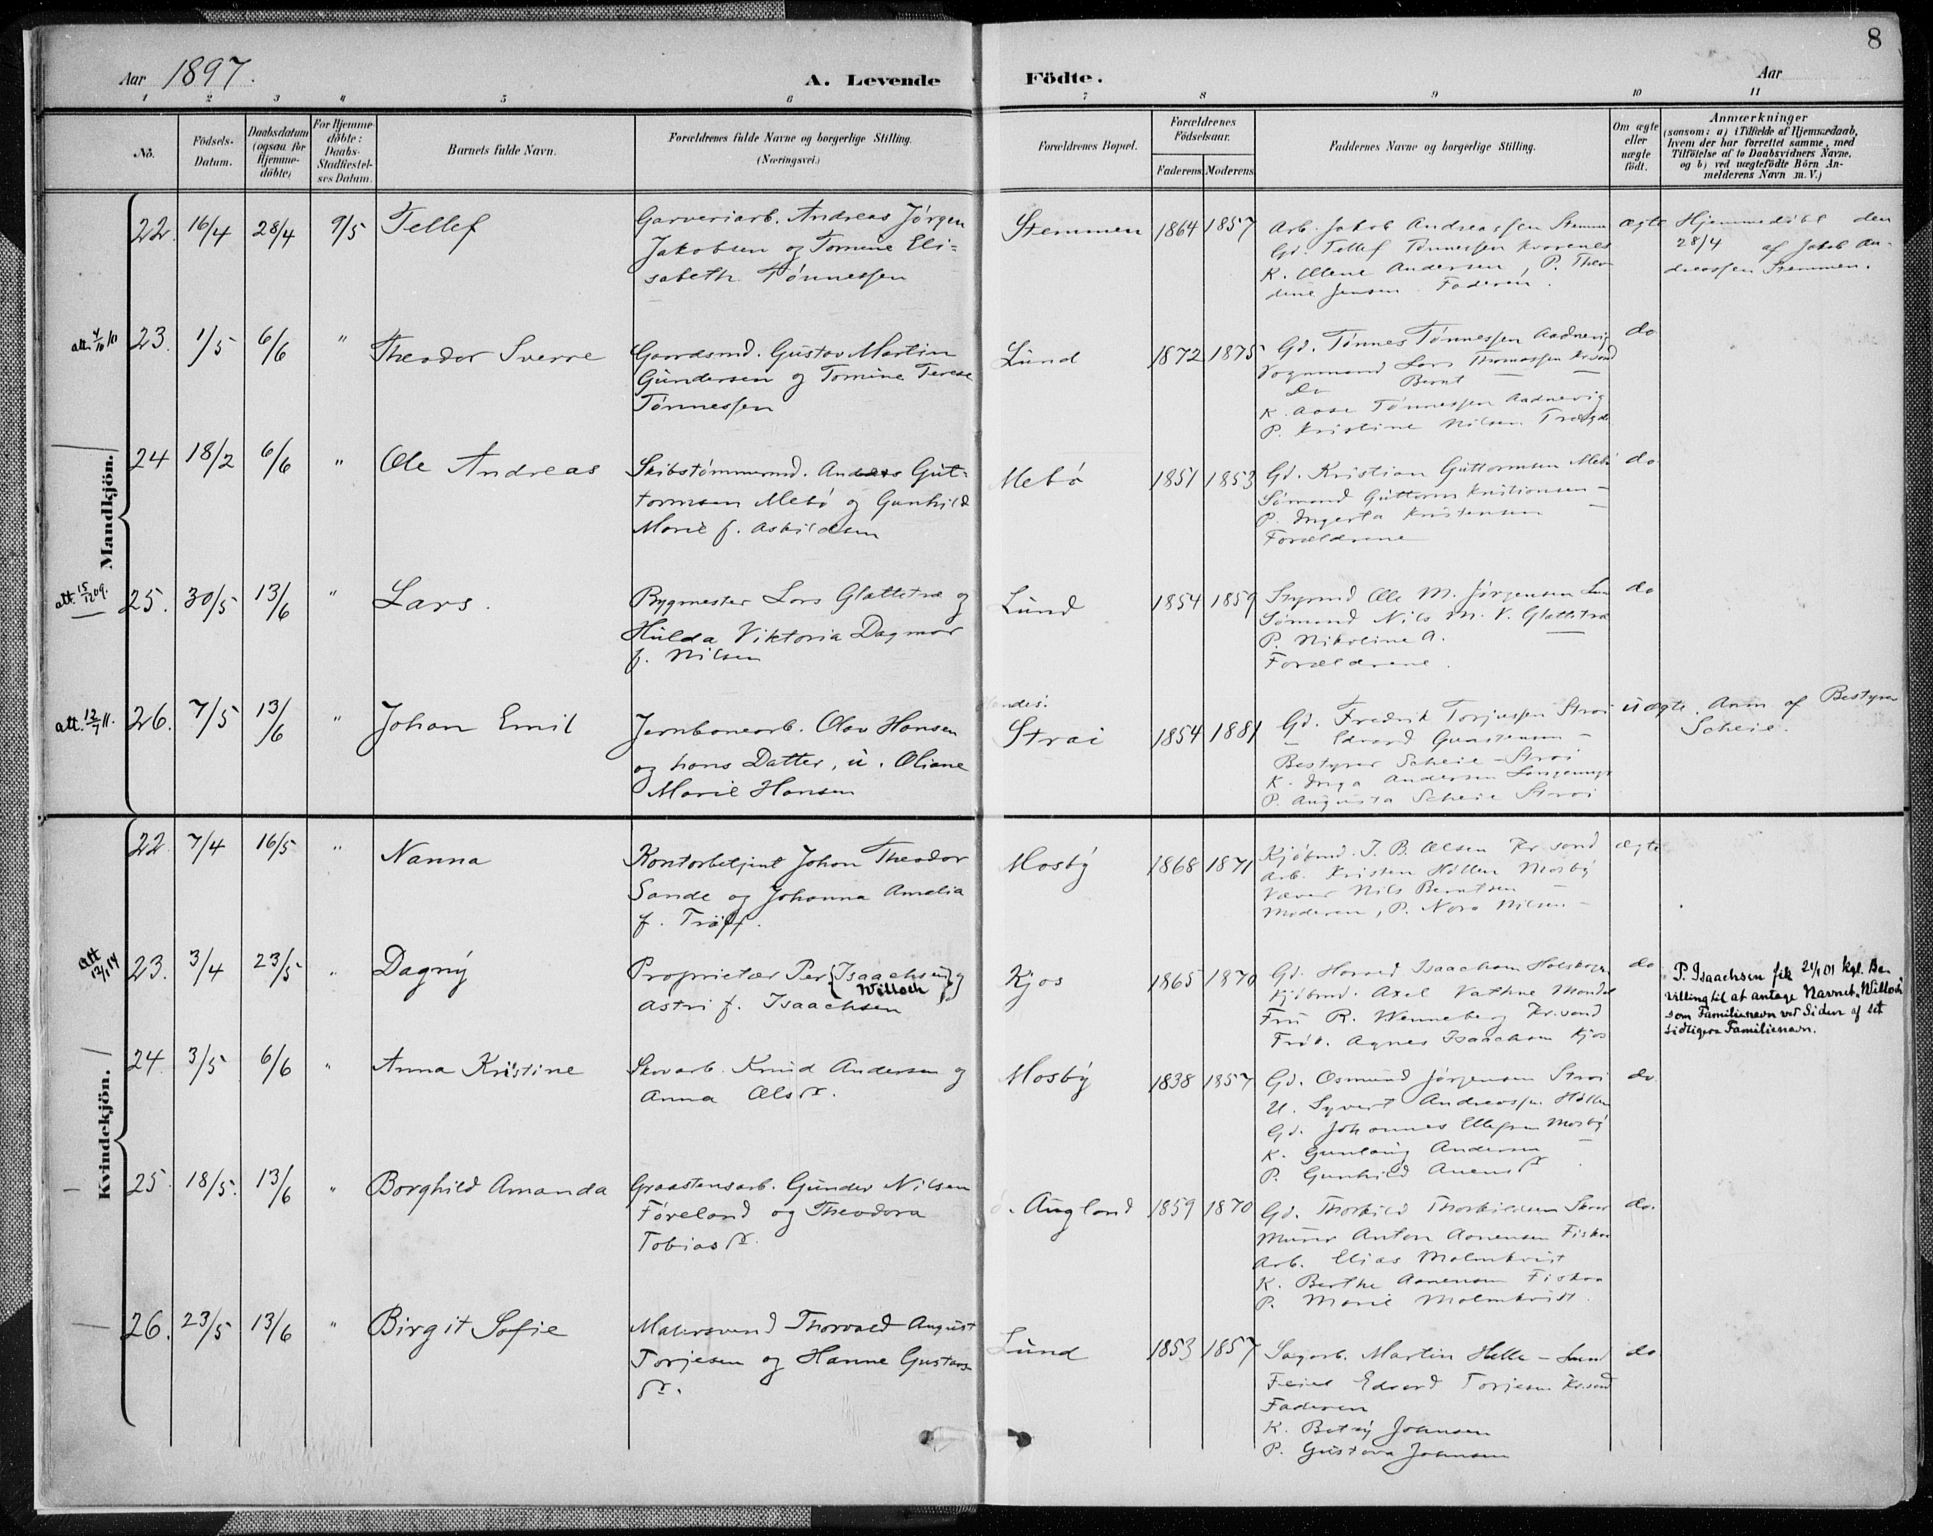 8
Aar 1897.
A. Levende Födte.
Aar
1 2 3 4 5 6 7 8 9 10 11
No.
Födsels-Datum.
Daabsdatum (ogsaa for Hjemme-döbte)
For Hjemme-döbte: Daabs-Stadfæstel-ses Datum.
Barnets fulde Navn.
Forældrenes fulde Navne og borgerlige Stilling. (Næringsvei.)
Forældrenes Bopæl.
Forældrenes Födselsaar.
Faderens Moderens
Faddernes Navne og borgerlige Stilling.
Om ægte eller uægte födt.
Anmærkninger
(saasom: a) i Tilfælde af Hjemmedaab,
hvem der har forrettet samme, med
Tilföielse af to Daabsvidners Navne,
og b) ved uægtefödte Börn An-
melderens Navn m. V.)
Mandkjön.
22. 16/4 28/4 9/5 Tellef
Garveriarb. Andreas Jørgen
Jakobsen og Tomine Eli=
sabeth Tønnessen
Stemmen 1864 1857
Arb. Jakob Andreassen Stemmen
Gd. Tellef Tønnessen Kvarenes
K. Olene Andersen, P. Theo-
dine Jensen Faderen.
ægte
Hjemmedøbt den
28/4 af Jakob An-
dreassen Stemmen.
23. 1/5 6/6 " Theodor Sverre
Gaardsmd. Gustav Martin
Gundersen og Tomine Terese
Tønnessen
Lund 1872 1875
Gd. Tønnes Tønnessen Aadnevig
Vognmand Lars Thomassen Kr.sand
Do Bernt — —
K. Aase Tønnessen Aadnevig
P. Kristine Nilsen
do
24 18/2 6/6 " Ole Andreas
Skibstømmermd. Anders Gut-
tormsen Mebø og Gunhild
Marie f. Askildsen
Mebø 1851 1853
Gd. Kristian Guttormsen Mebø
Sømand Guttorm Kristiansen —
P. Ingerta Kristensen —
Forældrene
do
att. 15/12 09.
25. 30/5 13/6 " Lars.
Bygmester Lars Glattetræ og
Hulda Viktoria Dagmar
f. Nilsen
Lund 1854 1859
Styrmd Ole M. Jørgensen
Sømand Nils M. V. Glattetræ
P. Nikoline A. —
Forældrene.
do
att. 12/7 11.
26. 7/5 13/6 " Johan Emil
Jernbanearb. Olav Hansen
og hans Datter, u. Oliane
Marie Hansen
Hendes:
Strai 1854 1881
Gd. Fredrik Torjussen Strai
— Edvard Gunstensen —
Bestyrer Scheie — Strai
K. Inga Andersen
P. Augusta Scheie Strai
uægte. Anm af Bestyrer
Scheie.
Kvindekjön.
22 7/4 16/5 " Nanna
Kontorbetjent Johan Theodor
Sande og Johanna Amalia
f. Trøff.
Mosby 1868 1871
Kjøbmd. J. B. Olsen Kr.sand
Arb. Kristen Høllen Mosby
Væver Nils Berntsen —
Moderen, P. Nora Nilsen —
ægte
Att 12/1 14
23. 3/4 23/5 " Dagny
Proprietær Per {Isaachsen} og
Willoch
Astri f. Isaachsen
Kjos 1865 1870
Gd. Harald Isaachsen
Kjøbmd. Axel Vathne Mandal
Fru R. Wenneberg Kr.sand
Frøk. Agnes Isaachsen Kjos
do
P. Isaachsen fik 21/1 01 kgl. Be-
villing til at antage Navnet „Willoch"
som Familienavn ved Siden af let
tidligere Familienavn.
24. 3/5 6/6 " Anna Kristine
Skovarb. Knud Andersen og
Anna Olsdr.
Mosby 1838 1857
Gd. Osmund Jørgensen Strai
U. Syvert Andreassen Høllen
Gd. Johannes Ellefsen Mosby
K. Gunlaug Andersen —
P. Gunhild
do
25. 18/5. 13/6 " Borghild Amanda
Graastensarb. Gunder Nilsen
Føreland og Theodora
Tobiasdr.
Augland 1859 1870
Gd. Thorkild Thorkildsen
Murer Anton Aanensen Fiskaa
Arb. Elias Malmkvist
K. Berthe Aanensen Fiskaa
P. Marie Malmkvist.
do.
26. 23/5 13/6 " Birgit Sofie
Malersvend Thorvald August
Torjesen og Hanne Gustavs-
dr.
Lund 1853 1857
Sagarb. Martin Helle — Lund
Feier Edvard Torjesen Kr.sand
Faderen
K. Betsy Johnsen
P. Gustava Johnsen
do